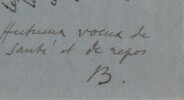 Heureux voeux de
santé et de repos
B.